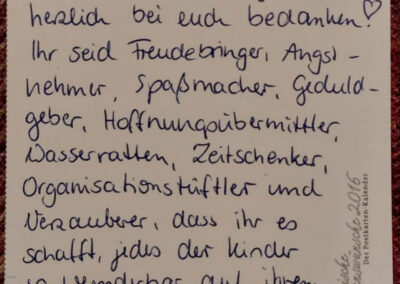 herzlich bei euch bedanken! ♡
Ihr seid Freudebringer, Angst-
nehmer, Spaßmacher, Geduld-
geber, Hoffnungsübermittler,
Wasserratten, Zeitschenker,
Organisationstüftler und
Verzauberer, dass ihr es
schafft, jedes der Kinder
so wunderbar auf ihrem
2016
Der Postkarten-Kalender